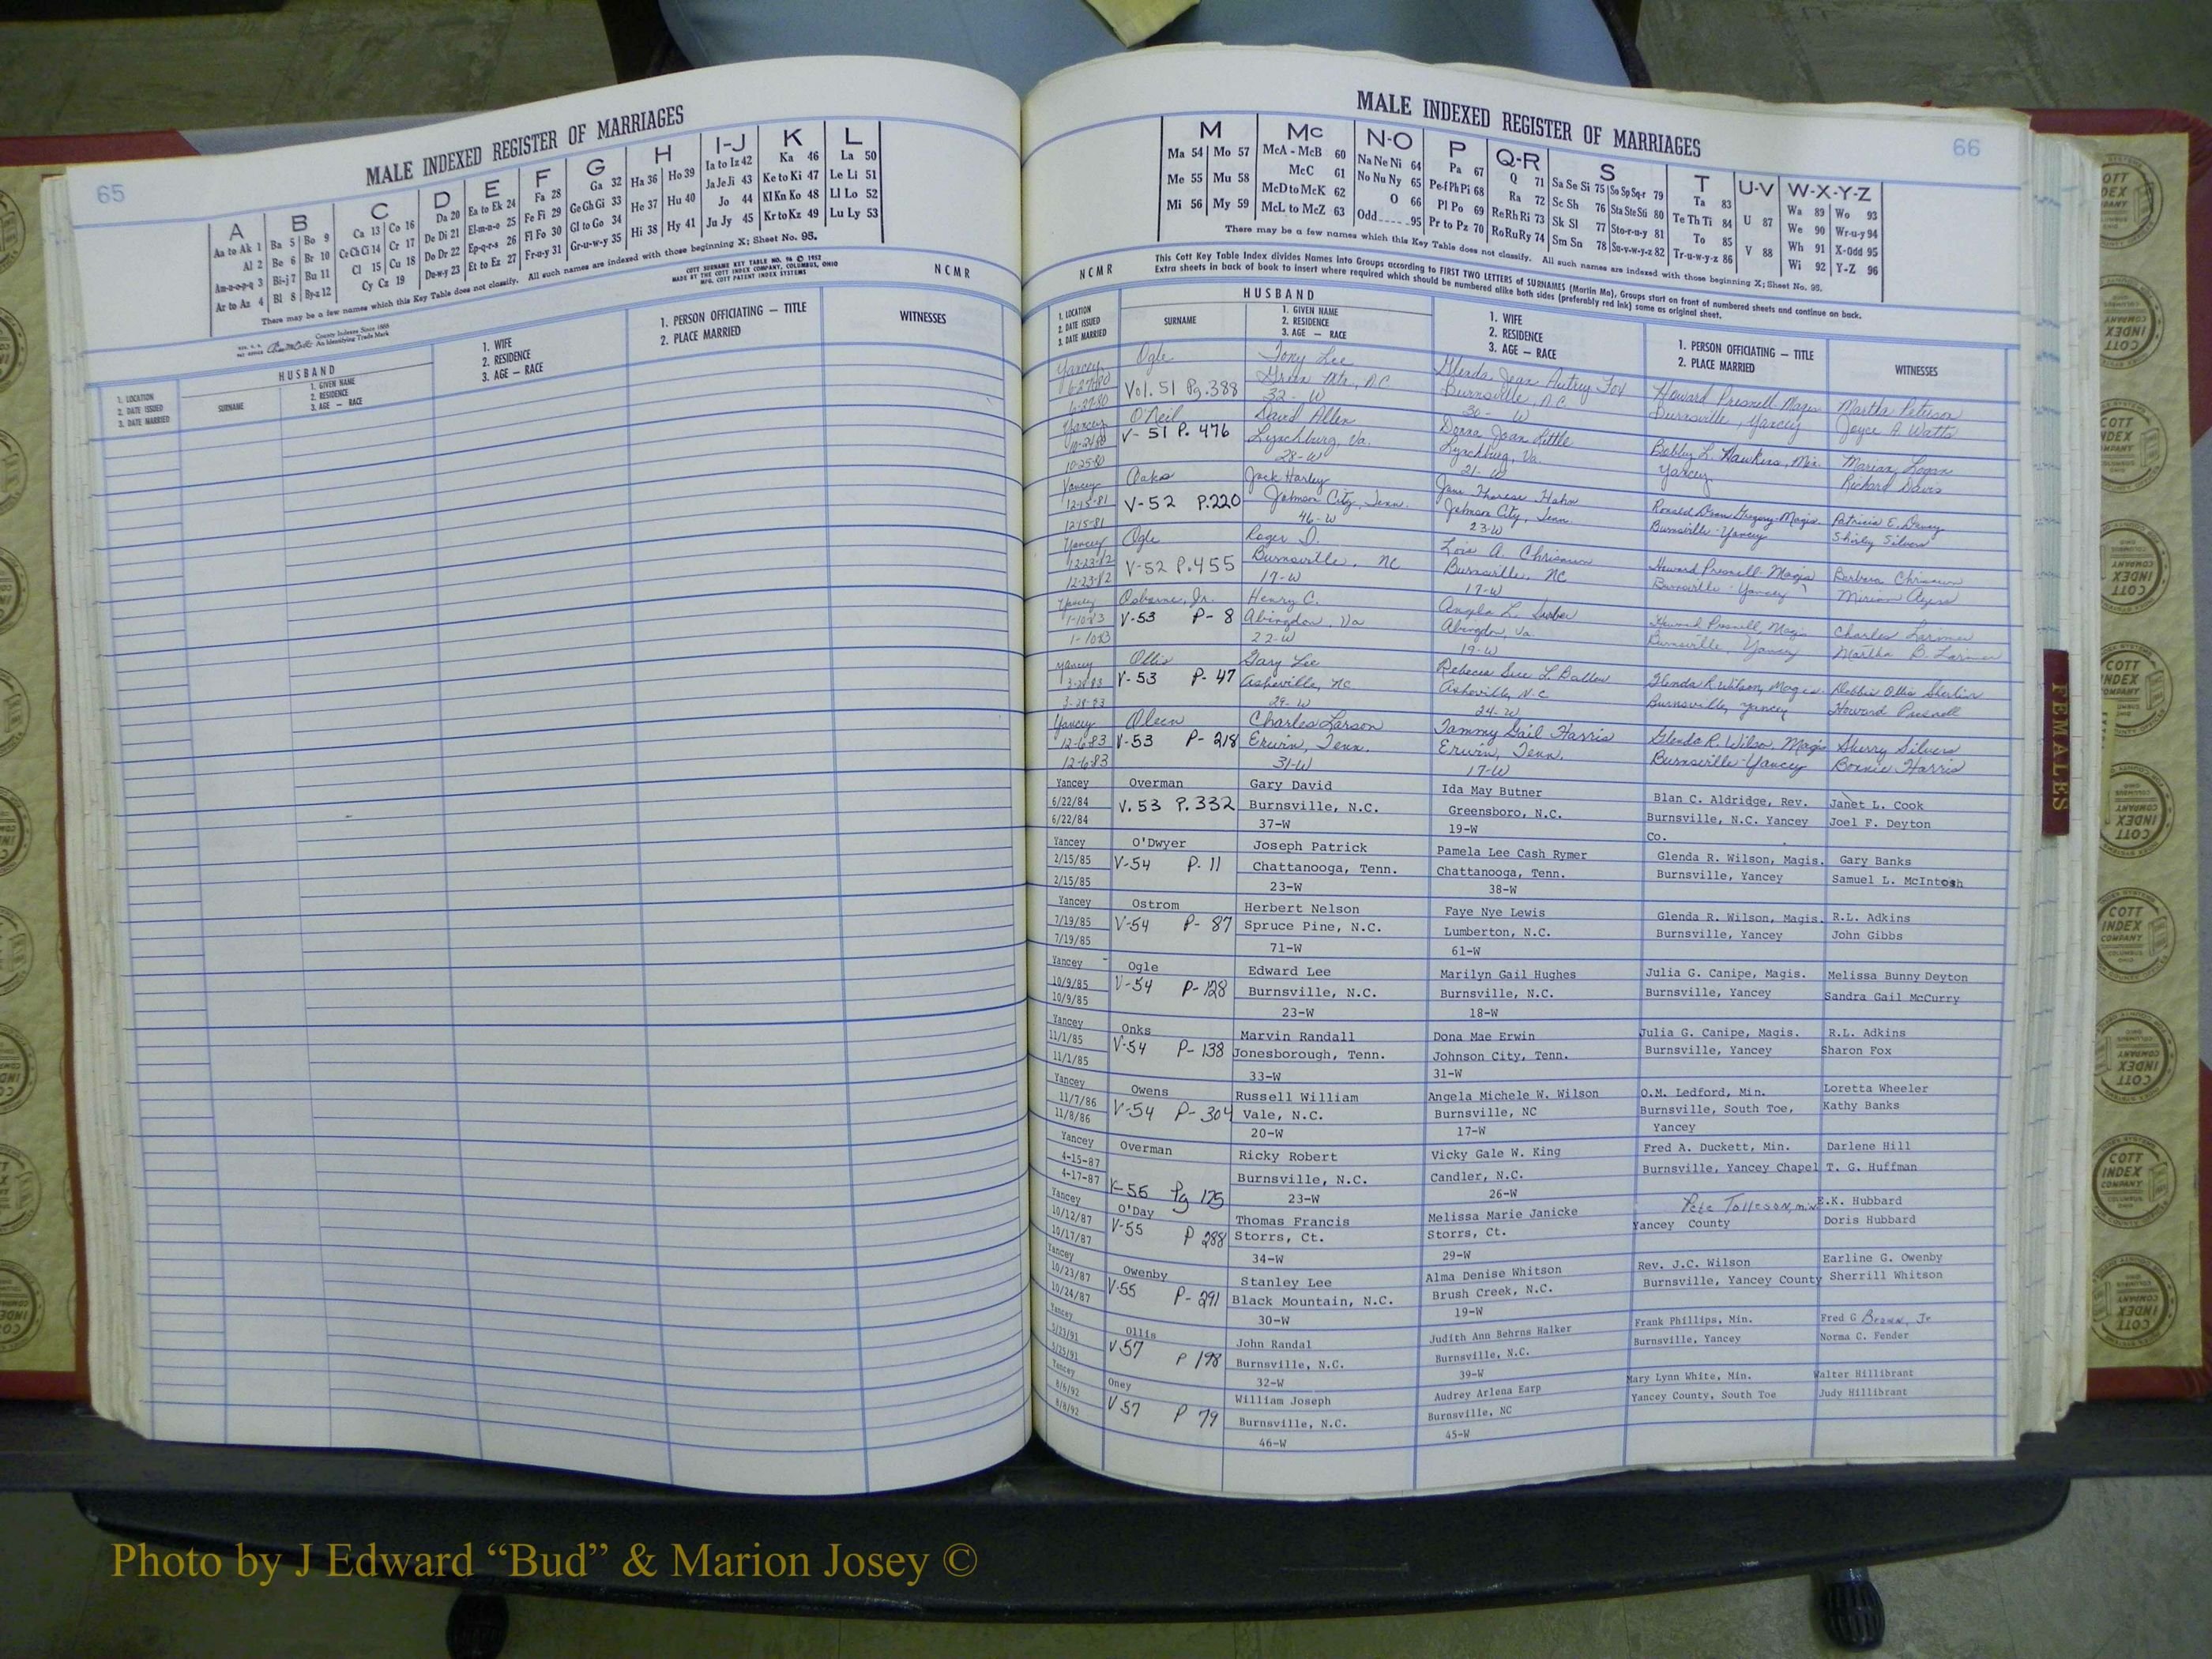 65
MALE INDEXED REGISTER OF MARRIAGES
A B C D E F G H I-J K L
Aa to Ak 1 Ba 5 Bo 9 Ca 13 Co 16 Da 20 Ea to Ek 24 Fa 28 Ga 32 Ha 36 Ho 39 Ia to Iz 42 Ka 46 La 50
Al 2 Be 6 Br 10 Ce Ch Ci 14 Cr 17 De Di 21 El-m-n-o 25 Fe Fi 29 Ge Gh Gi 33 He 37 Hu 40 Ja Je Ji 43 Ke to Ki 47 Le Li 51
Am-n-o-p-q 3 Bi-j 7 Bu 11 Cl 15 Cu 18 Do Dr 22 Ep-q-r-s 26 Fl Fo 30 Gl to Go 34 Hi 38 Hy 41 Jo 44 Kl Kn Ko 48 Ll Lo 52
Ar to Az 4 Bl 8 By-z 12 Cy Cz 19 Du-w-y 23 Et to Ez 27 Fr-u-y 31 Gr-u-w-y 35 Ju Jy 45 Kr to Kz 49 Lu Ly 53
There may be a few names which this Key Table does not classify. All such names are indexed with those beginning X; Sheet No. 95.
COTT SURNAME KEY TABLE NO. 96 © 1952
MADE BY THE COTT INDEX COMPANY, COLUMBUS, OHIO
MFG. COTT PATENT INDEX SYSTEMS
NCMR
County Indexes Since 1888
An Identifying Trade Mark
1. LOCATION
2. DATE ISSUED
3. DATE MARRIED
HUSBAND
SURNAME
1. GIVEN NAME
2. RESIDENCE
3. AGE — RACE
1. WIFE
2. RESIDENCE
3. AGE — RACE
1. PERSON OFFICIATING — TITLE
2. PLACE MARRIED
WITNESSES
MALE INDEXED REGISTER OF MARRIAGES
66
M Mc N-O P Q-R S T U-V W-X-Y-Z
Ma 54 Mo 57 McA - McB 60 Na Ne Ni 64 Pa 67 Q 71 Sa Se Si 75 So Sp Sq-r 79 Ta 83 Wa 89 Wo 93
Me 55 Mu 58 McC 61 No Nu Ny 65 Pe-f Ph Pi 68 Ra 72 Sc Sh 76 Sta Ste Sti 80 Te Th Ti 84 U 87 We 90 Wr-u-y 94
Mi 56 My 59 McD to McK 62 O 66 Pl Po 69 Re Rh Ri 73 Sk Sl 77 Sto-r-u-y 81 To 85 Wh 91 X-Odd 95
McL to McZ 63 Odd 95 Pr to Pz 70 Ro Ru Ry 74 Sm Sn 78 Su-v-w-y-z 82 Tr-u-w-y-z 86 V 88 Wi 92 Y-Z 96
There may be a few names which this Key Table does not classify. All such names are indexed with those beginning X; Sheet No. 95.
NCMR
This Cott Key Table Index divides Names into Groups according to FIRST TWO LETTERS of SURNAMES (Martin Ma), Groups start on front of numbered sheets and continue on back.
Extra sheets in back of book to insert where required which should be numbered alike both sides (preferably red ink) same as original sheet.
1. LOCATION
2. DATE ISSUED
3. DATE MARRIED
HUSBAND
SURNAME
1. GIVEN NAME
2. RESIDENCE
3. AGE — RACE
1. WIFE
2. RESIDENCE
3. AGE — RACE
1. PERSON OFFICIATING — TITLE
2. PLACE MARRIED
WITNESSES
Yancey Ogle Tony Lee Glenda Jean Autrey Fox Howard Presnell Magis Martha Peterson
6-27-80 Vol. 51 Pg. 388 Green Mtn, N.C. Burnsville, N.C. Burnsville, Yancey Joyce A. Watts
6-27-80 32-W 30-W
Yancey O'Neil David Allen Donna Jean Little Bobby L. Hawkins, Min. Marian Logan
10-24-80 V-51 P. 476 Lynchburg, Va. Lynchburg, Va. Yancey Richard Davis
10-25-80 28-W 21-W
Yancey Oaks Jack Harley Jane Therese Hahn Ronald Dean Gregory-Magis. Patricia E. Dancy
12-15-81 V-52 P. 220 Johnson City, Tenn. Johnson City, Tenn. Burnsville-Yancey Shirley Silvers
12-15-81 46-W 23-W
Yancey Ogle Roger D. Lois A. Chrisawn Howard Presnell-Magis Barbara Chrisawn
12-23-82 V-52 P. 455 Burnsville, NC Burnsville, NC Burnsville-Yancey Miriam Ayers
12-23-82 17-W 17-W
Yancey Osborne, Jr. Henry C. Angela L. Howard Presnell, Magis Charles Larimer
1-10-83 V-53 P-8 Abingdon, Va Abingdon, Va. Burnsville, Yancey Martha B. Larimer
1-10-83 22-W 19-W
Yancey Ollis Gary Lee Rebecca Sue L. Ballew Glenda R Wilson, Magis. Debbie Ollis Sherlin
3-28-83 V-53 P-47 Asheville, NC Asheville, N.C Burnsville, Yancey Howard Presnell
3-28-83 29-W 24-W
Yancey Oleen Charles Larson Tammy Gail Harris Glenda R. Wilson, Magis Sherry Silvers
12-6-83 V-53 P-218 Erwin, Tenn. Erwin, Tenn. Burnsville-Yancey Bonnie Harris
12-6-83 31-W 17-W
Yancey Overman Gary David Ida May Butner Blan C. Aldridge, Rev. Janet L. Cook
6/22/84 V. 53 P. 332 Burnsville, N.C. Greensboro, N.C. Burnsville, N.C. Yancey Joel F. Deyton
6/22/84 37-W 19-W Co.
Yancey O'Dwyer Joseph Patrick Pamela Lee Cash Rymer Glenda R. Wilson, Magis. Gary Banks
2/15/85 V-54 P. 11 Chattanooga, Tenn. Chattanooga, Tenn. Burnsville, Yancey Samuel L. McIntosh
2/15/85 23-W 38-W
Yancey Ostrom Herbert Nelson Faye Nye Lewis Glenda R. Wilson, Magis. R.L. Adkins
7/19/85 V-54 P-87 Spruce Pine, N.C. Lumberton, N.C. Burnsville, Yancey John Gibbs
7/19/85 71-W 61-W
Yancey Ogle Edward Lee Marilyn Gail Hughes Julia G. Canipe, Magis. Melissa Bunny Deyton
10/9/85 V-54 P-128 Burnsville, N.C. Burnsville, N.C. Burnsville, Yancey Sandra Gail McCurry
10/9/85 23-W 18-W
Yancey Onks Marvin Randall Dona Mae Erwin Julia G. Canipe, Magis. R.L. Adkins
11/1/85 V-54 P-138 Jonesborough, Tenn. Johnson City, Tenn. Burnsville, Yancey Sharon Fox
11/1/85 33-W 31-W
Yancey Owens Russell William Angela Michele W. Wilson O.M. Ledford, Min. Loretta Wheeler
11/7/86 V-54 P-304 Vale, N.C. Burnsville, NC Burnsville, South Toe, Kathy Banks
11/8/86 20-W 17-W Yancey
Yancey Overman Ricky Robert Vicky Gale W. King Fred A. Duckett, Min. Darlene Hill
4-15-87 Burnsville, N.C. Candler, N.C. Burnsville, Yancey Chapel T. G. Huffman
4-17-87 Pg 175 23-W 26-W
Yancey O'Day Thomas Francis Melissa Marie Janicke Pete Tolleson, min E.K. Hubbard
10/12/87 V-55 P 288 Storrs, Ct. Storrs, Ct. Yancey County Doris Hubbard
10/17/87 34-W 29-W
Yancey Owenby Stanley Lee Alma Denise Whitson Rev. J.C. Wilson Earline G. Owenby
10/23/87 V-55 P-291 Black Mountain, N.C. Brush Creek, N.C. Burnsville, Yancey County Sherrill Whitson
10/24/87 30-W 19-W
Yancey Ollis John Randal Judith Ann Behrns Halker Frank Phillips, Min. Fred G Brown, Jr
5/23/91 V 57 P 198 Burnsville, N.C. Burnsville, N.C. Burnsville, Yancey Norma C. Fender
5/25/91 32-W 39-W
Yancey Oney William Joseph Audrey Arlena Earp Mary Lynn White, Min. Walter Hillibrant
8/6/92 V 57 P 79 Burnsville, N.C. Burnsville, NC Yancey County, South Toe Judy Hillibrant
8/8/92 46-W 45-W
FEMALES
COTT INDEX COMPANY
Photo by J Edward “Bud” & Marion Josey ©